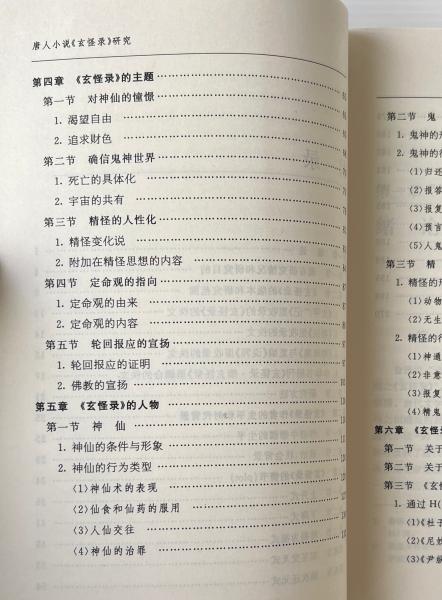 唐人小说《玄怪录》研究
第四章 《玄怪录》的主题
第一节 对神仙的憧憬
1. 渴望自由
2. 追求财色
第二节 确信鬼神世界
1. 死亡的具体化
2. 宇宙的共有
第三节 精怪的人性化
1. 精怪变化说
2. 附加在精怪思想的内容
第四节 定命观的指向
1. 定命观的由来
2. 定命观的内容
第五节 轮回报应的宣扬
1. 轮回报应的证明
2. 佛教的宣扬
第五章 《玄怪录》的人物
第一节 神 仙
1. 神仙的条件与形象
2. 神仙的行为类型
(1)神仙术的表现
(2)仙食和仙药的服用
(3)人仙交往
(4)神仙的治罪
第二节 鬼
1. 鬼神的
2. 鬼神的
(1)归还
(2)报答
(3)报复
(4)预言
(5)人鬼
第三节 精
1. 精怪的
(1)动物
(2)无生
2. 精怪的
(1)神通
(2)非意
(3)报复
(4)精鬼
第六章 《玄怪
第一节 关于
第二节 关于
第三节 《玄
1. 通过 H(
(1)《杜子
(2)《尼妙
(3)《尹